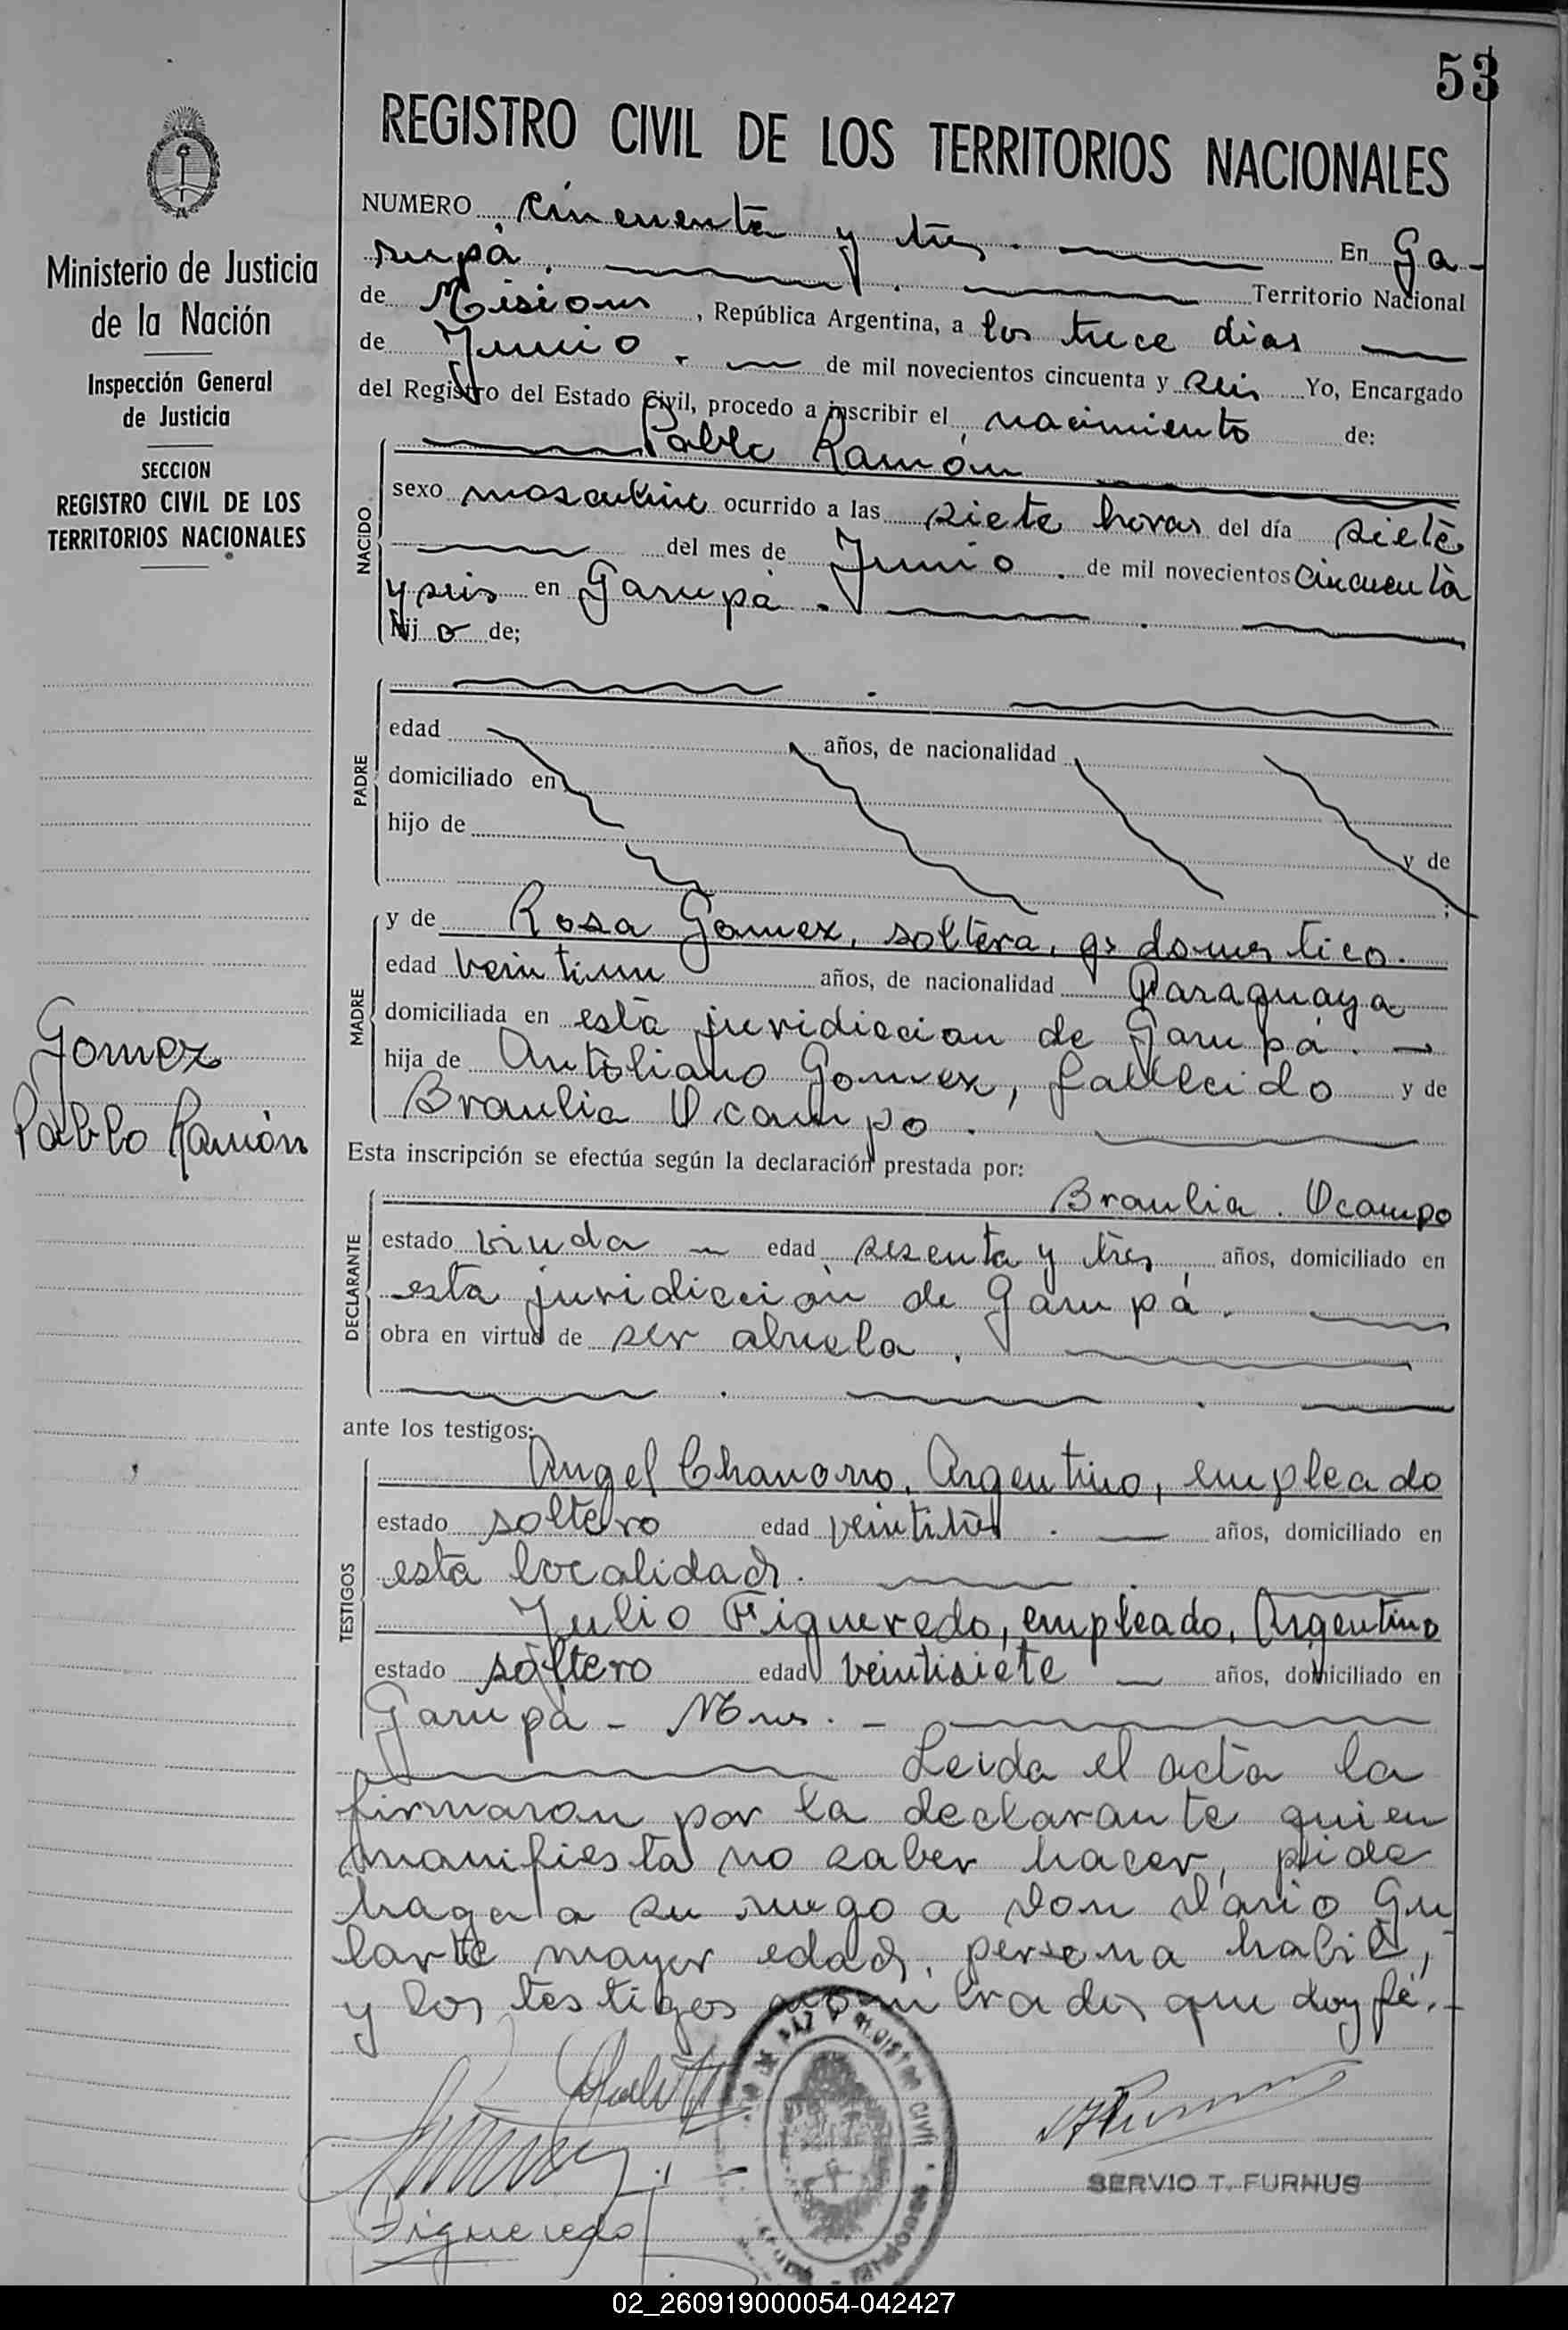 53
REGISTRO CIVIL DE LOS TERRITORIOS NACIONALES
Ministerio de Justicia
de la Nación
Inspección General
de Justicia
SECCION
REGISTRO CIVIL DE LOS
TERRITORIOS NACIONALES
Gomez
Pablo Ramón
NUMERO cincuenta y tres. En Ga-
rupá. Territorio Nacional
de Misiones, República Argentina, a los trece dias
de Junio. de mil novecientos cincuenta y seis Yo, Encargado
del Registro del Estado Civil, procedo a inscribir el nacimiento de:
NACIDO
Pablo Ramón
sexo masculino ocurrido a las siete horas del día siete
del mes de Junio. de mil novecientos cincuenta
y seis en Garupá.
hijo de;
PADRE
edad años, de nacionalidad
domiciliado en
hijo de y de
;
MADRE
y de Rosa Gomez, soltera, qs domestico.
edad veintiun años, de nacionalidad Paraguaya
domiciliada en esta juridiccion de Garupá.
hija de Antoliano Gomez, fallecido y de
Braulia Ocampo.
Esta inscripción se efectúa según la declaración prestada por:
DECLARANTE
Braulia. Ocampo
estado viuda edad sesenta y tres, años, domiciliado en
esta juridicción de Garupá.
obra en virtud de ser abuela.
ante los testigos:
TESTIGOS
Angel Chamorro, Argentino, empleado
estado soltero edad veintitres. años, domiciliado en
esta localidad.
Julio Figueredo, empleado, Argentino
estado soltero edad veintisiete años, domiciliado en
Garupá - Mnes. -
Leida el acta la
firmaron por la declarante quien
manifiesta no saber hacer, pide
haga a su ruego a don Dario Gu
larte mayor edad, persona habil,
y los testigos nombrados que doy fé.-
Figueredo
SERVIO T. FURNUS
02_260919000054-042427